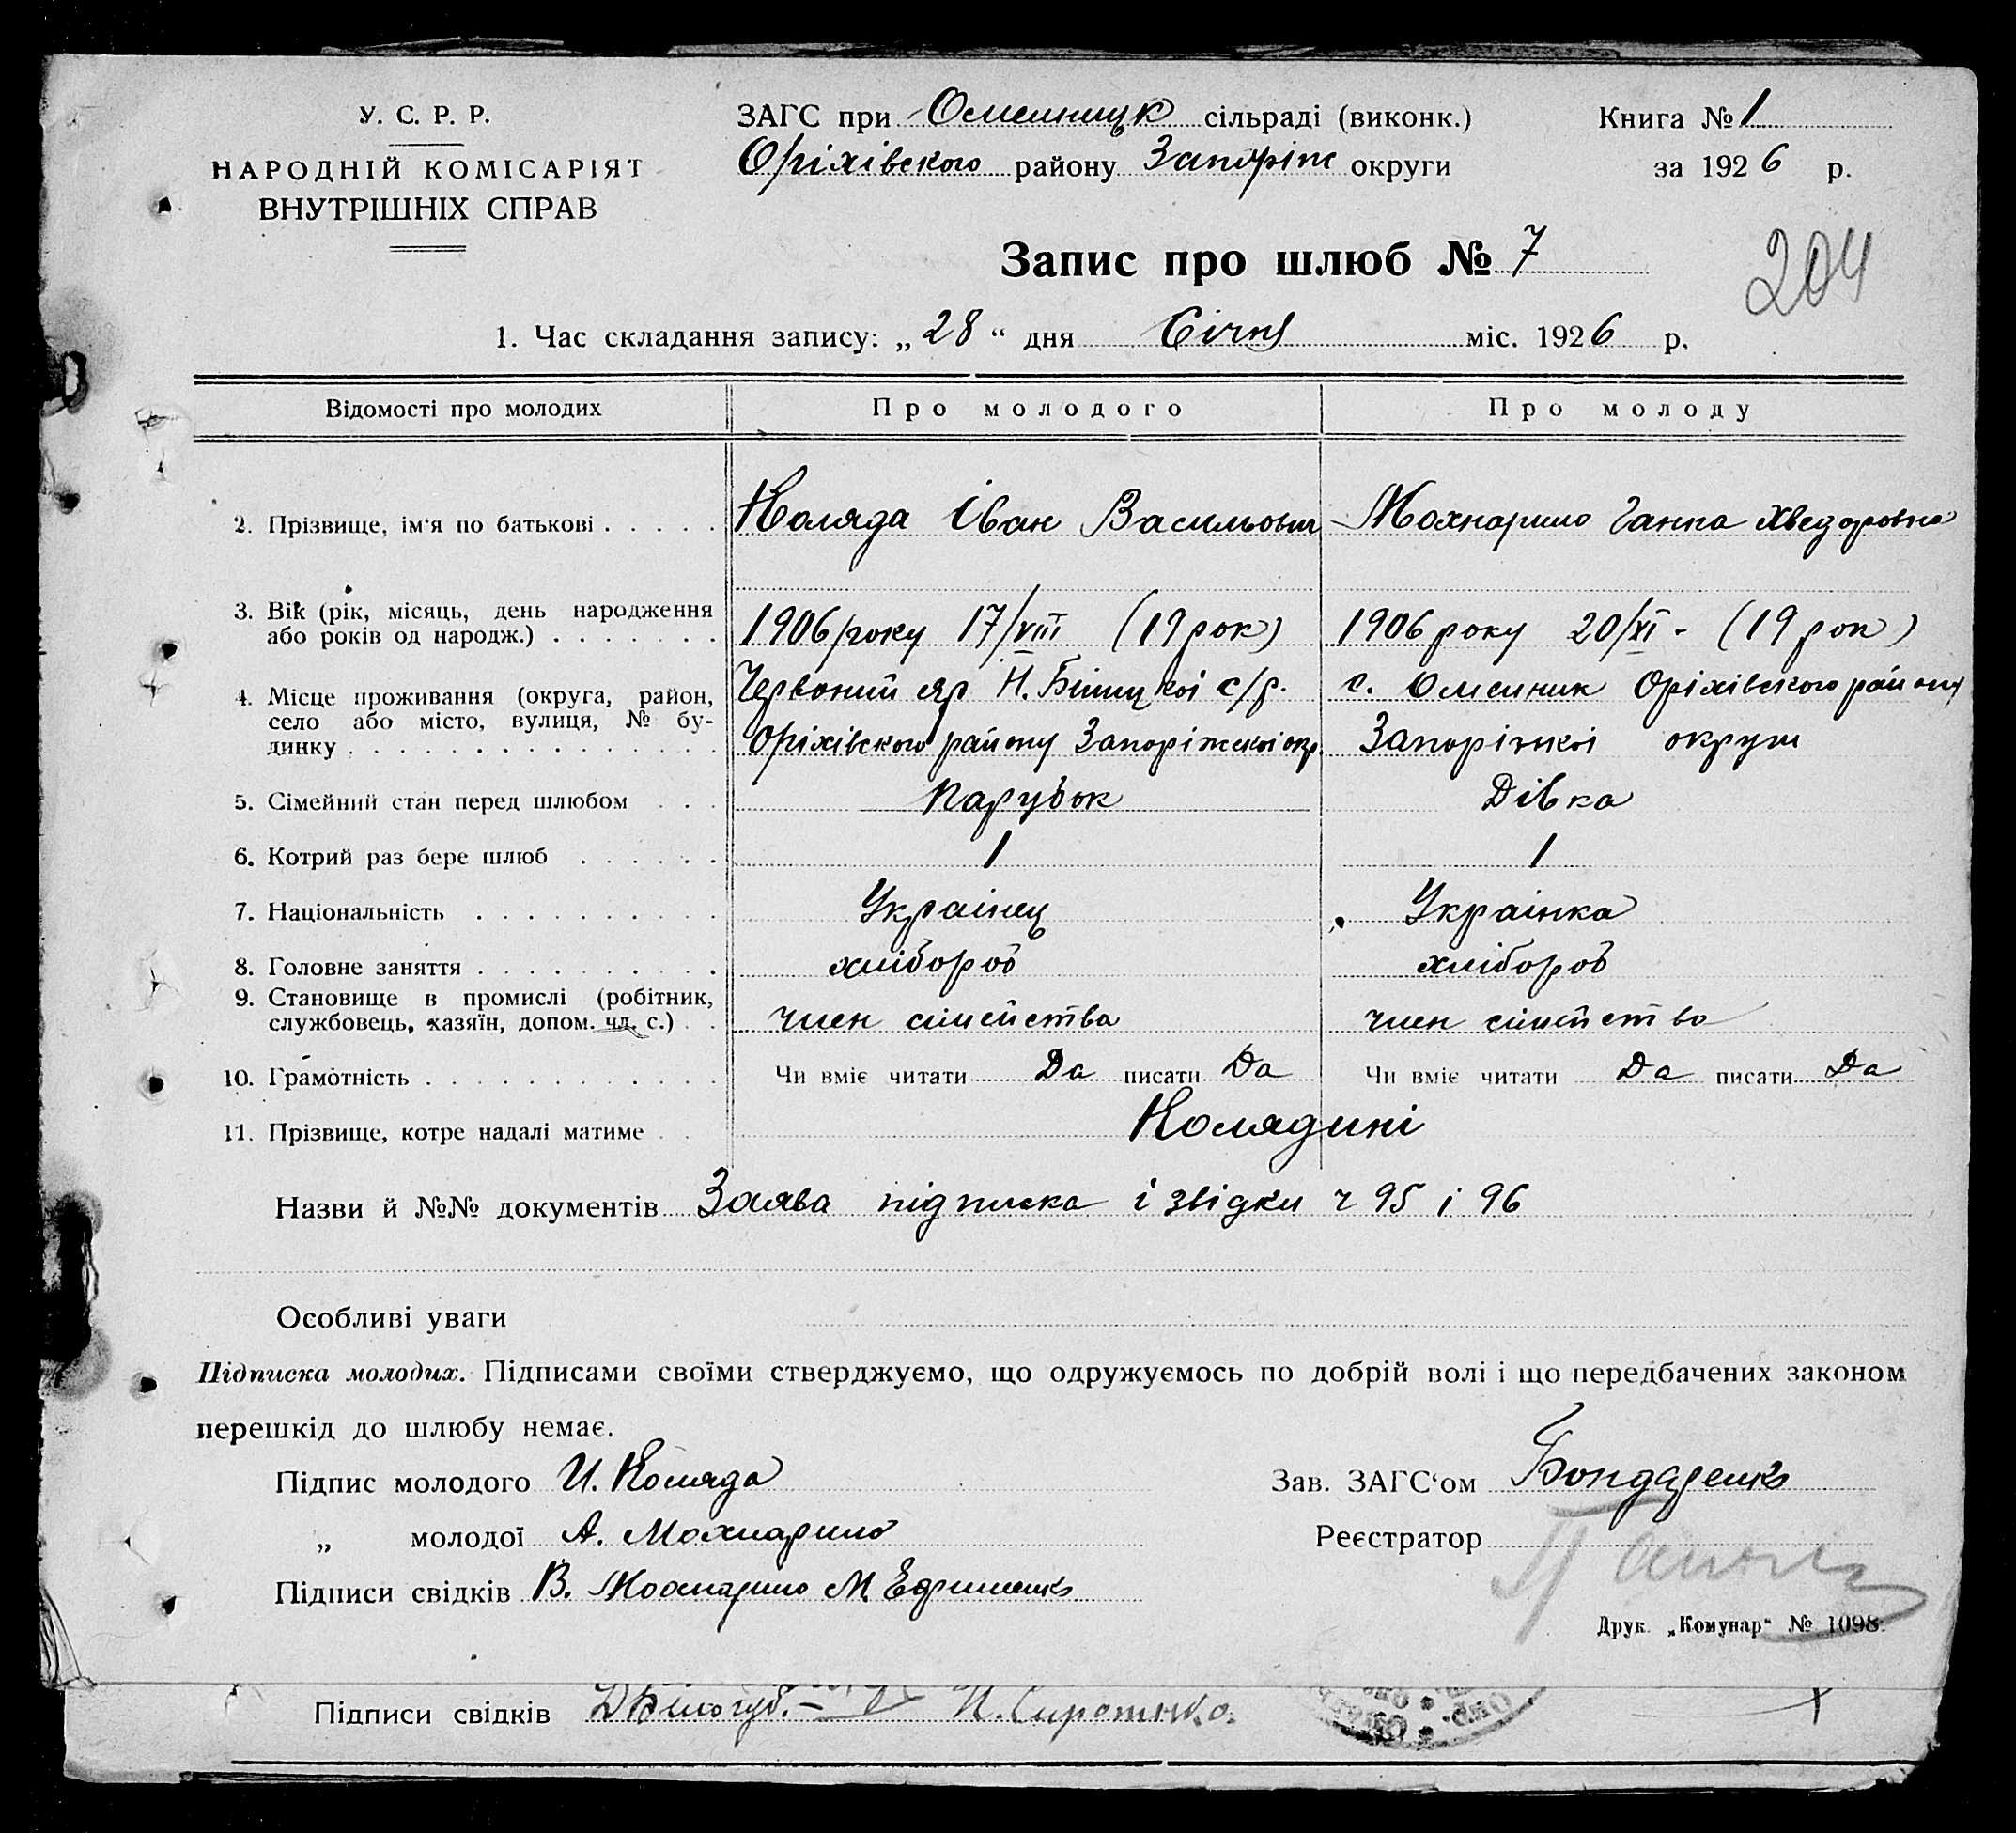 У. С. Р. Р.
НАРОДНІЙ КОМІСАРІЯТ
ВНУТРІШНІХ СПРАВ
ЗАГС при Омельницьк сільраді (виконк.)
Оріхівского району Запоріж округи
Книга № 1
за 1926 р.
Запис про шлюб № 7
204
1. Час складання запису: „28“ дня Січня міс. 1926 р.
Відомості про молодих Про молодого Про молоду
2. Прізвище, ім'я по батькові . . . . . Коляда Іван Васильович Мохнарило Ганна Хведоровна
3. Вік (рік, місяць, день народження
або років од народж.) . . . . . . . 1906 року 17/VIII (19 рок) 1906 року 20/XI - (19 рок)
4. Місце проживання (округа, район, Червоний яр с/р. с. Омельник Оріхівского району
село або місто, вулиця, № бу-
динку . . . . . . . . . . . . . . Оріхівского району Запоріжскоі окр. Запоріжкоі округи
5. Сімейний стан перед шлюбом . . . Парубок Дівка
6. Котрий раз бере шлюб . . . . . . 1 1
7. Національність . . . . . . . . . . Украінец Украінка
8. Головне заняття . . . . . . . . . . хлібороб хлібороб
9. Становище в промислі (робітник,
службовець, хазяїн, допом. чл. с.) . . член сімейства член сімейства
10. Грамотність . . . . . . . . . . . . Чи вміє читати Да писати Да Чи вміє читати Да писати Да
11. Прізвище, котре надалі матиме . . Колядині
Назви й №№ документів Заява підписка і звідки ч 95 і 96
Особливі уваги
Підписка молодих. Підписами своїми стверджуємо, що одружуємось по добрій волі і що передбачених законом
перешкід до шлюбу немає.
Підпис молодого И. Коляда
Зав. ЗАГС'ом Бондаренко
„ молодої А. Мохнарило
Реєстратор
Підписи свідків В. Мохнарило М.
Друк. „Комунар“ № 1098.
Підписи свідків И. Сиротенко.